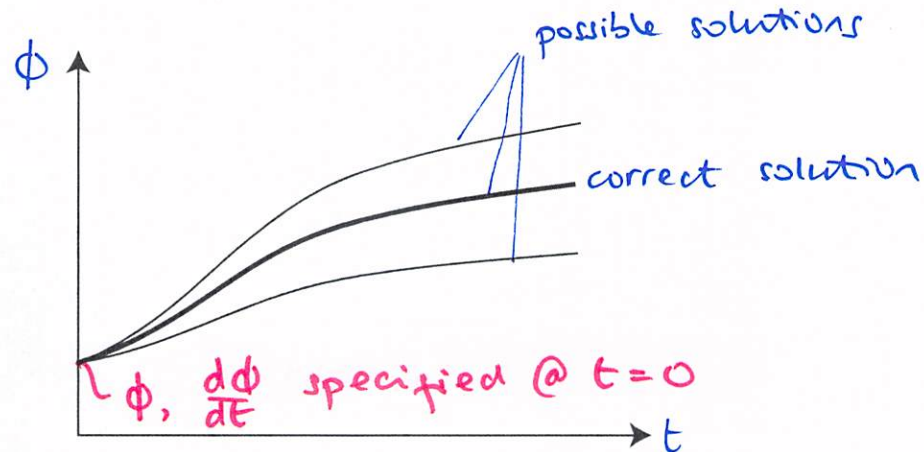 possible solutions
ϕ
correct solution
ϕ, dϕ/dt specified @ t=0
t